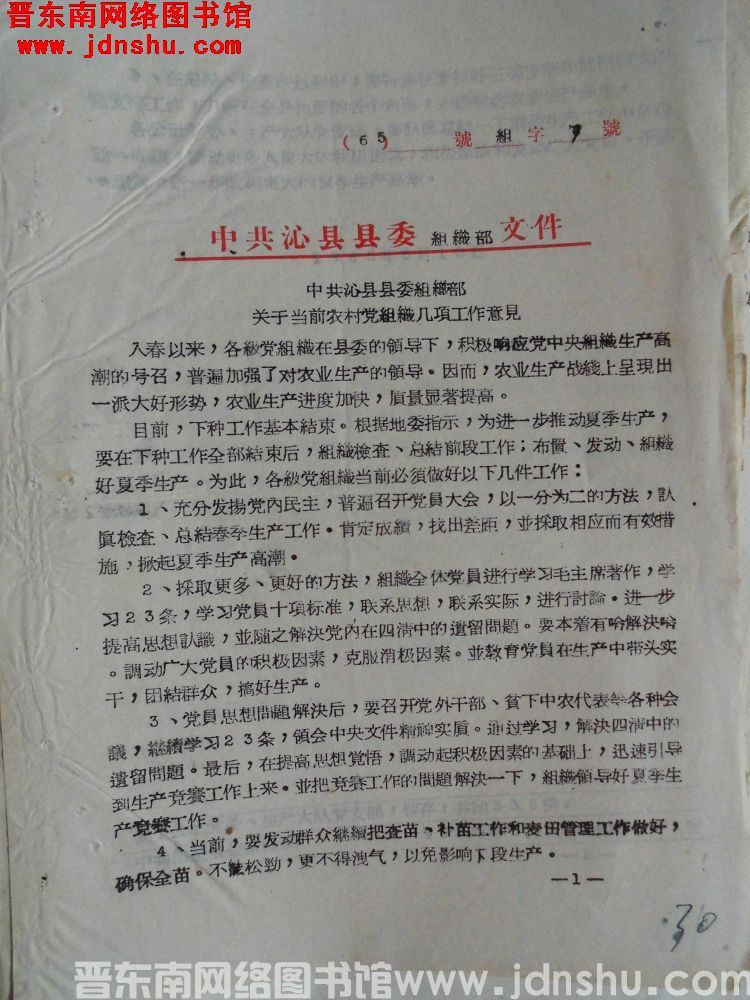 晋东南网络图书馆
www.jdnshu.com
(65) 號 組字 7 號
中共沁县县委 組織部 文件
中共沁县县委組織部
关于当前农村党組織几項工作意見
入春以来，各級党組織在县委的領导下，积极响应党中央組織生产高
潮的号召，普遍加强了对农业生产的領导。因而，农业生产战綫上呈現出
一派大好形势，农业生产进度加快，質量显著提高。
目前，下种工作基本結束。根据地委指示，为进一步推动夏季生产，
要在下种工作全部結束后，組織檢查、总結前段工作；布置、发动、組織
好夏季生产。为此，各級党組織当前必須做好以下几件工作：
1、充分发揚党內民主，普遍召开党員大会，以一分为二的方法，認
眞檢查、总結春季生产工作。肯定成績，找出差距，並採取相应而有效措
施，掀起夏季生产高潮。
2、採取更多、更好的方法，組織全体党員进行学习毛主席著作，学
习23条，学习党員十項标准，联系思想，联系实际，进行討論。进一步
提高思想認識，並随之解决党內在四清中的遺留問題。要本着有啥解决啥
。調动广大党員的积极因素，克服消极因素。並教育党員在生产中带头实
干，团結群众，搞好生产。
3、党員思想問題解决后，要召开党外干部、貧下中农代表等各种会
議，継續学习23条，領会中央文件精神实質。通过学习，解决四清中的
遺留問題。最后，在提高思想覚悟，調动起积极因素的基础上，迅速引导
到生产竞賽工作上来。並把竞賽工作的問題解决一下，組織領导好夏季生
产竞賽工作。
4、当前，要发动群众継續把查苗、补苗工作和麦田管理工作做好，
确保全苗。不能松勁，更不得洩气，以免影响下段生产。
—1—
30
晋东南网络图书馆www.jdnshu.com